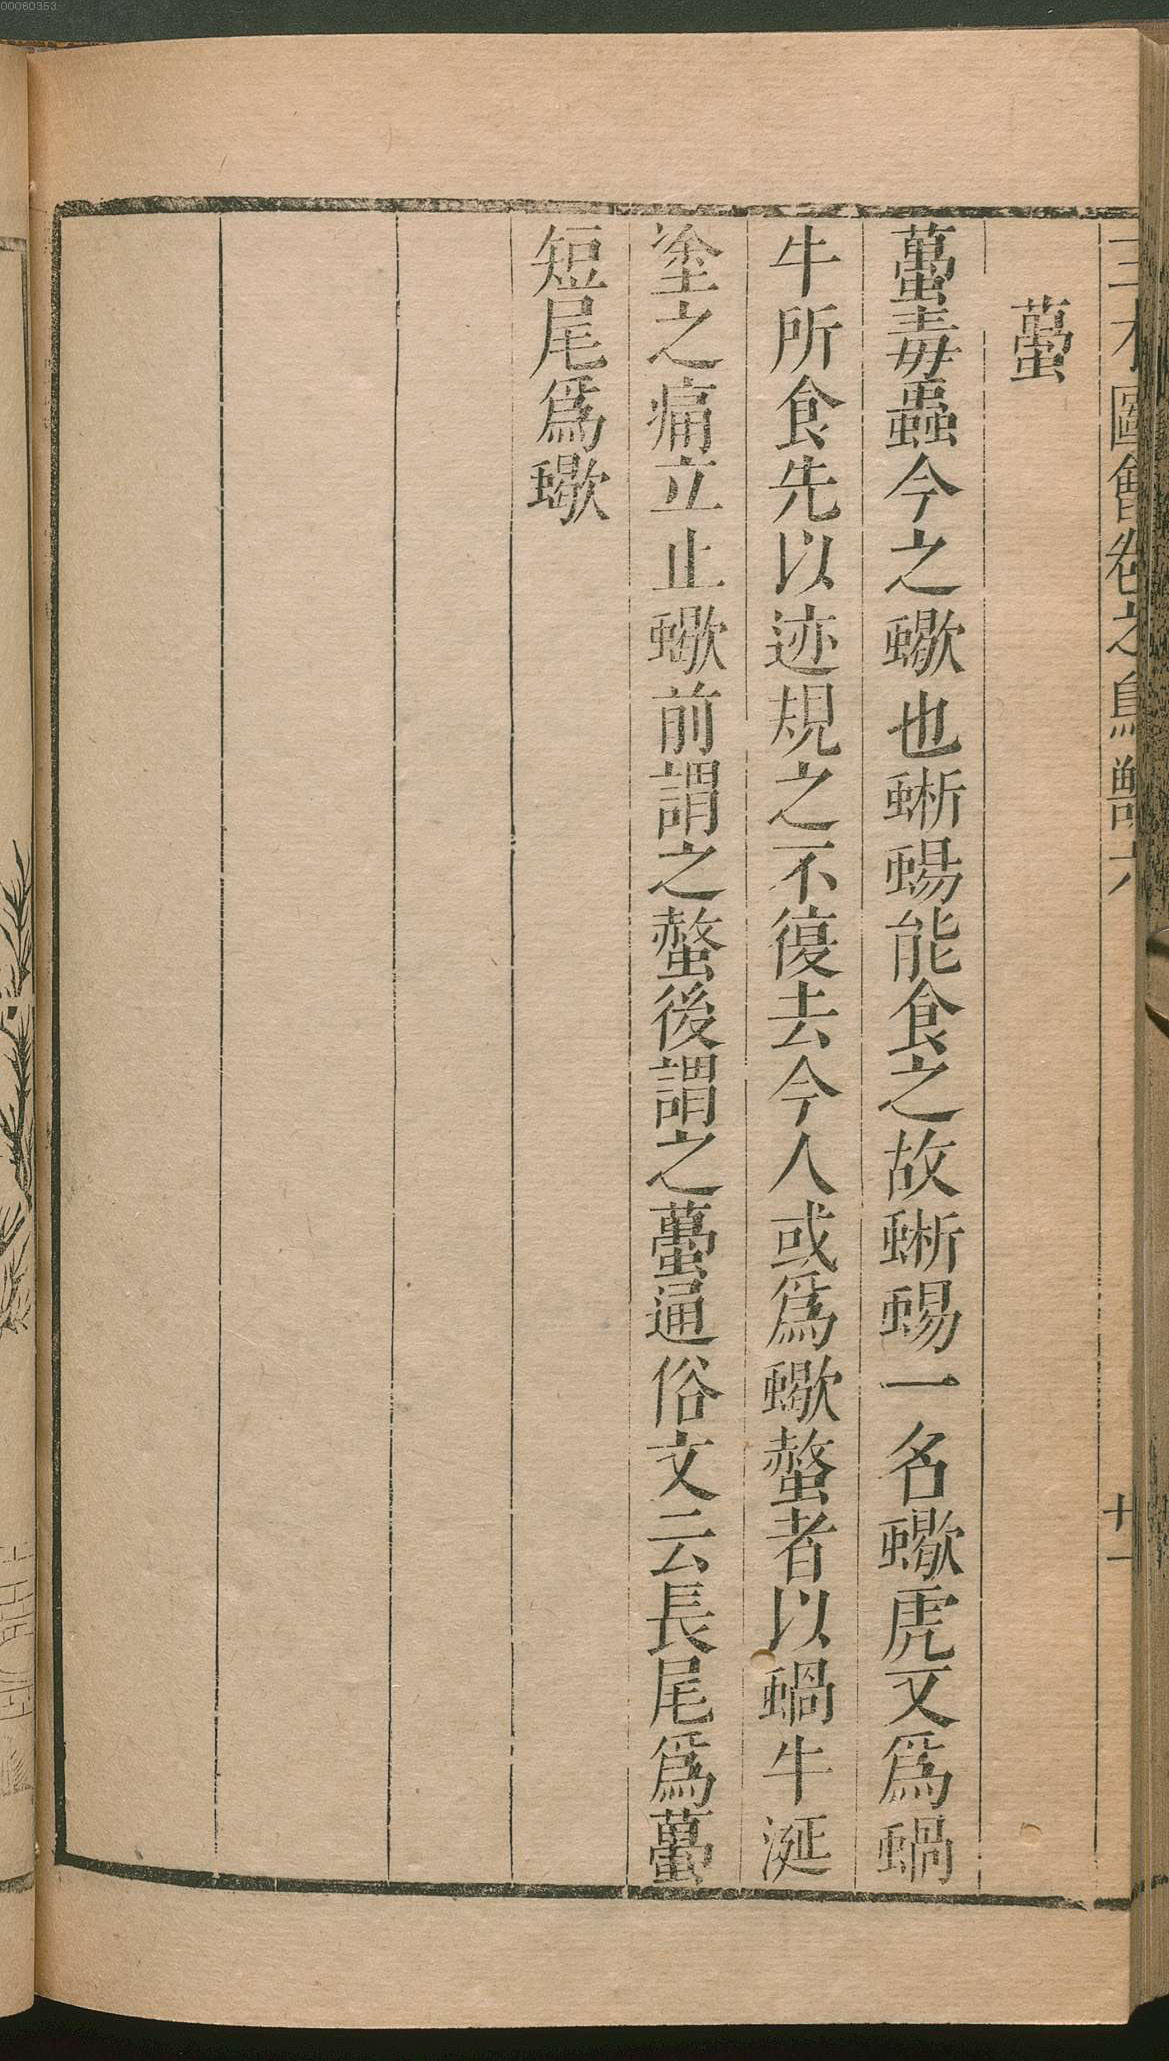 00060353
三才圖會卷之鳥獸六
十一
蠆
蠆毒蟲今之蠍也蜥蜴能食之故蜥蜴一名蠍虎又爲蝸
牛所食先以迹規之不復去今人或爲蠍螫者以蝸牛涎
塗之痛立止蠍前謂之螫後謂之蠆通俗文云長尾爲蠆
短尾爲蠍